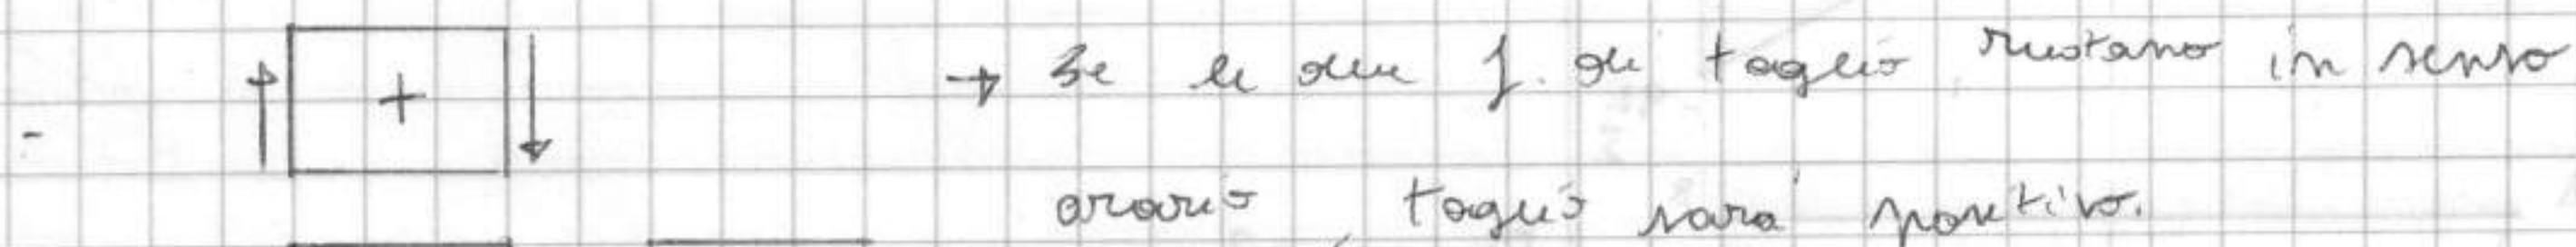 - + → Se le due f. di taglio ruotano in senso
orario, taglio sarà positivo.